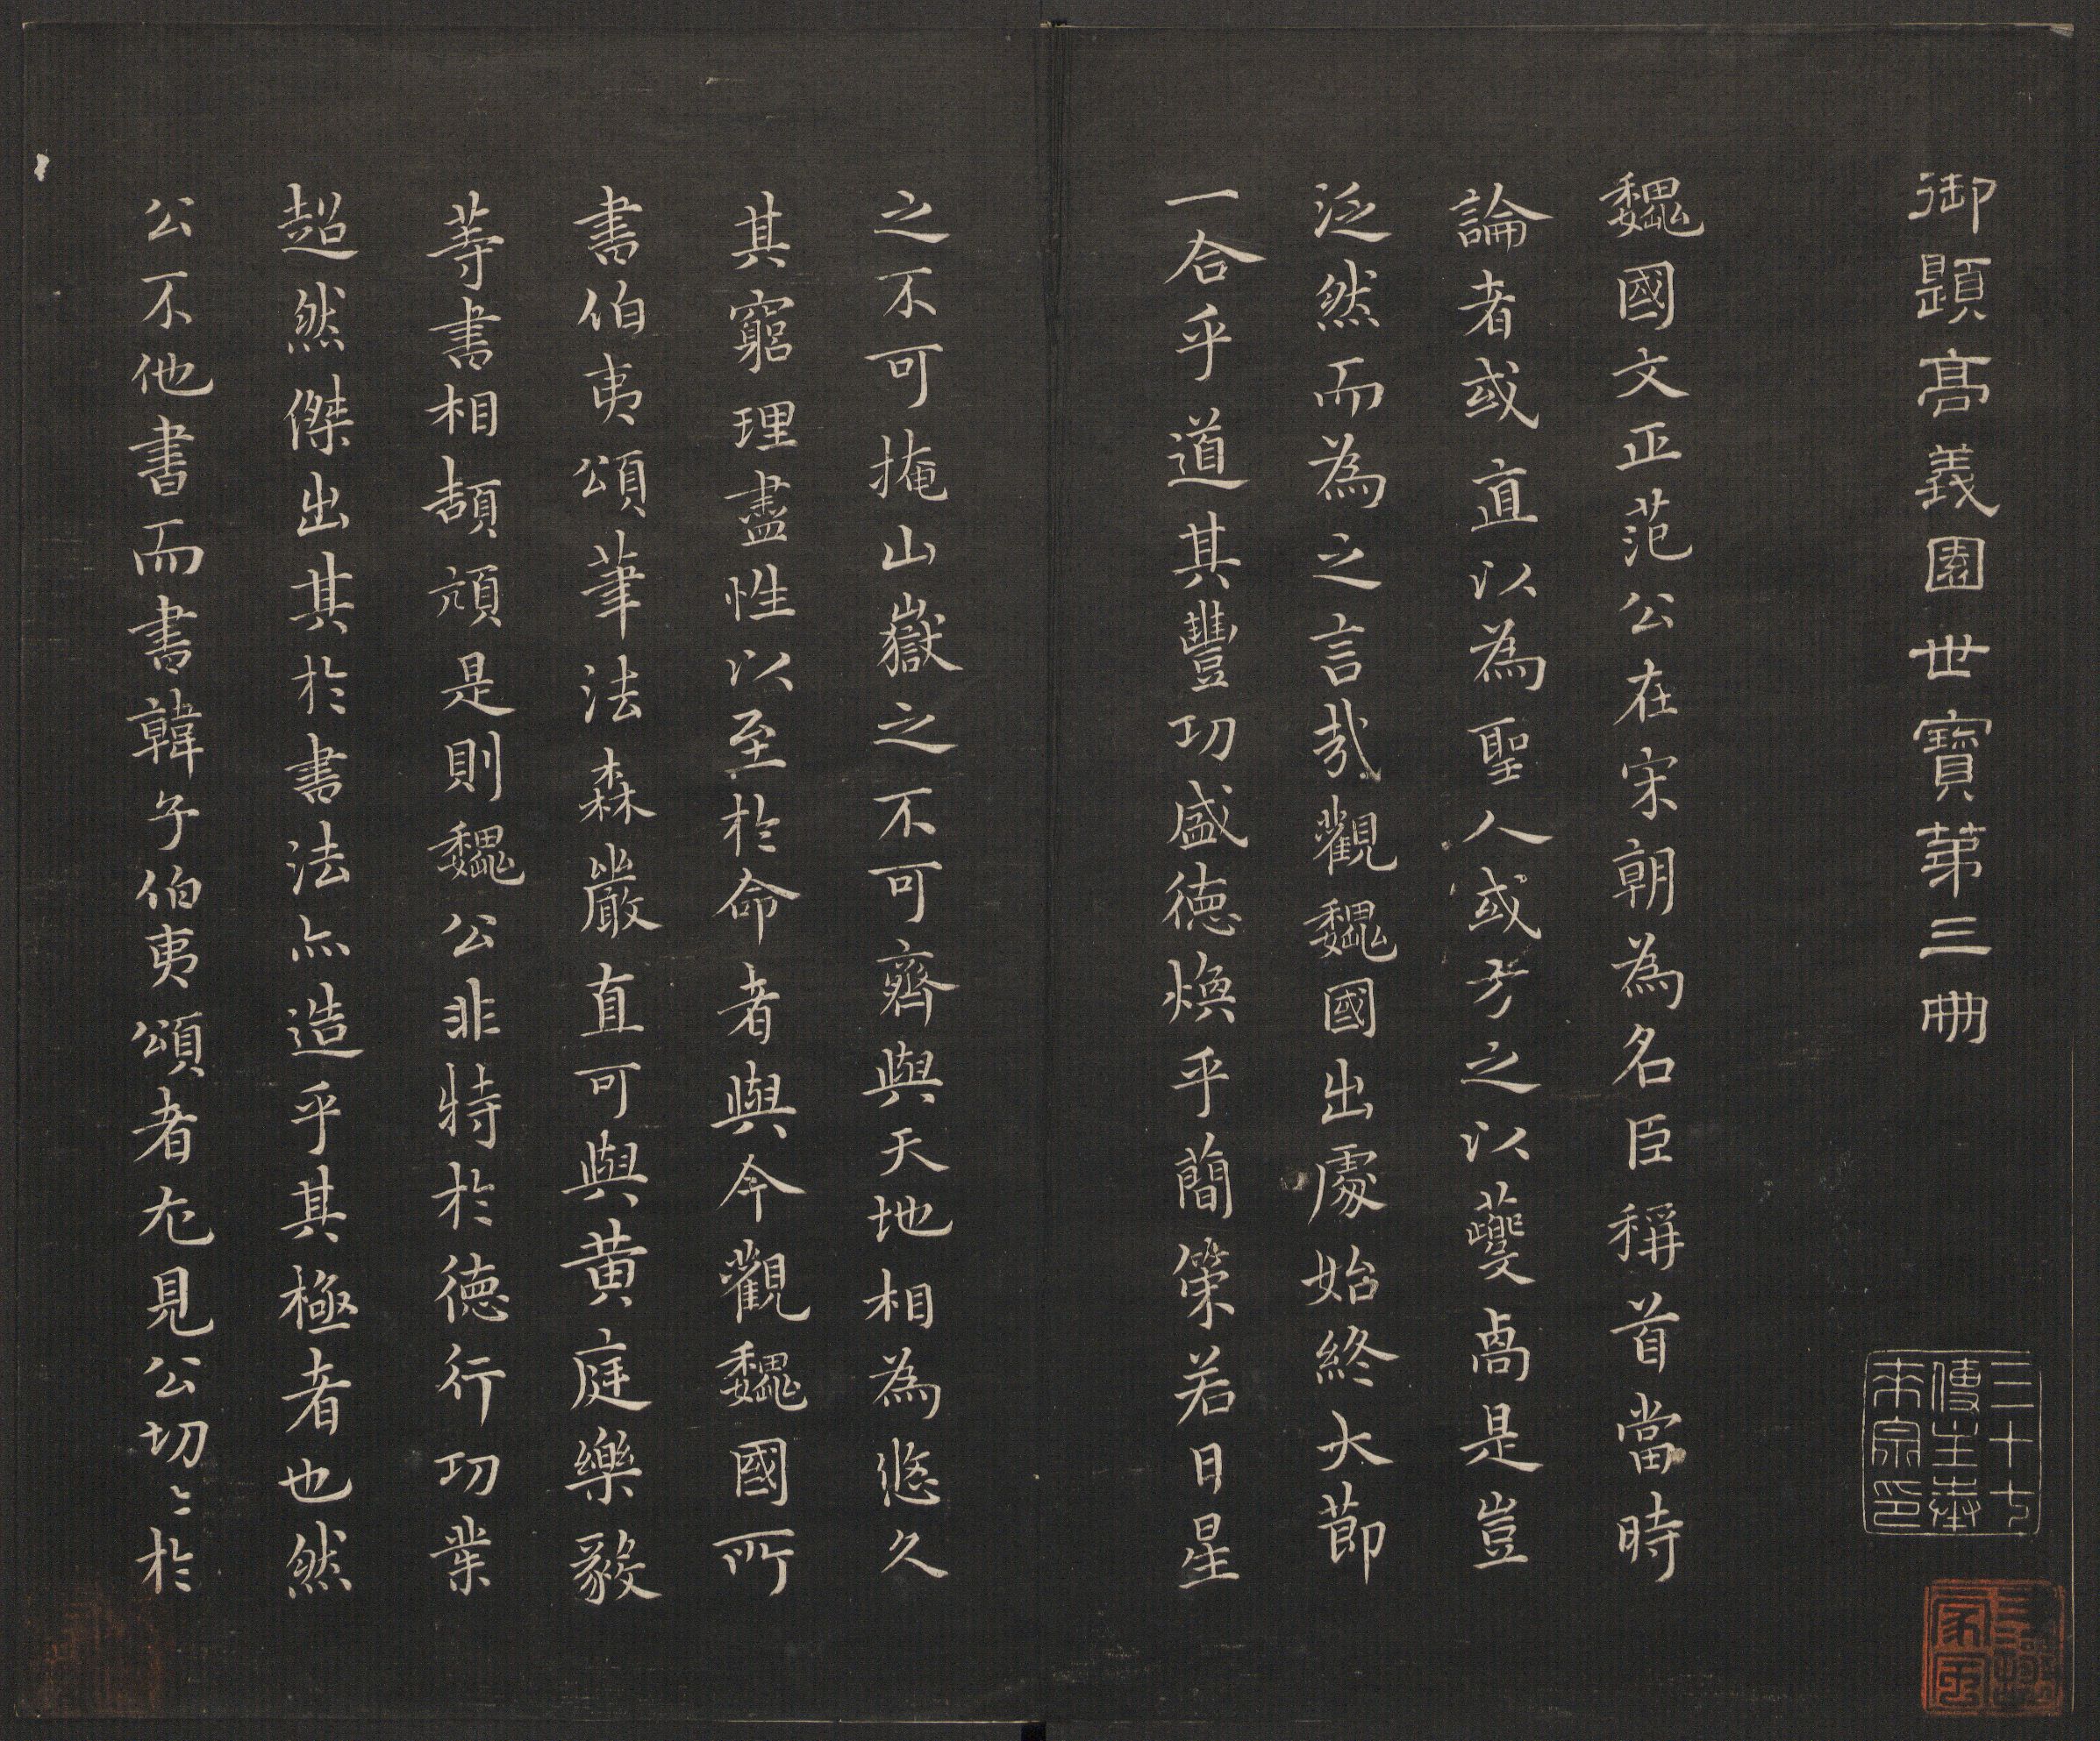 御題高義園世寶第三冊
三十七
傳主奉
來宗印
魏國文正范公在宋朝為名臣稱首當時
論者或直以為聖人或方之以夔卨是豈
泛然而為之言哉觀魏國出處始終大節
一合乎道其豐功盛德煥乎簡策若日星
之不可掩山嶽之不可齊與天地相為悠久
其窮理盡性以至於命者與今觀魏國所
書伯夷頌筆法森嚴直可與黃庭樂毅
等書相頡頏是則魏公非特於德行功業
超然傑出其於書法亦造乎其極者也然
公不他書而書韓子伯夷頌者尤見公切〻於